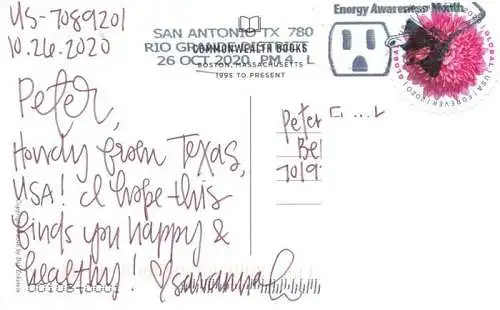 US-7089201
10.26.2020
SAN ANTONIO TX 780
RIO GRANDE DISTRICT
26 OCT 2020 PM 4 L
COMMONWEALTH BOOKS
BOSTON, MASSACHUSETTS
1995 TO PRESENT
Energy Awareness Month
GLOBAL
USA FOREVER 2020
GLOBAL
Peter,
Howdy from Texas,
USA! I hope this
finds you happy &
healthy! ♡savanna
Peter
Be
70/9
00108-0001